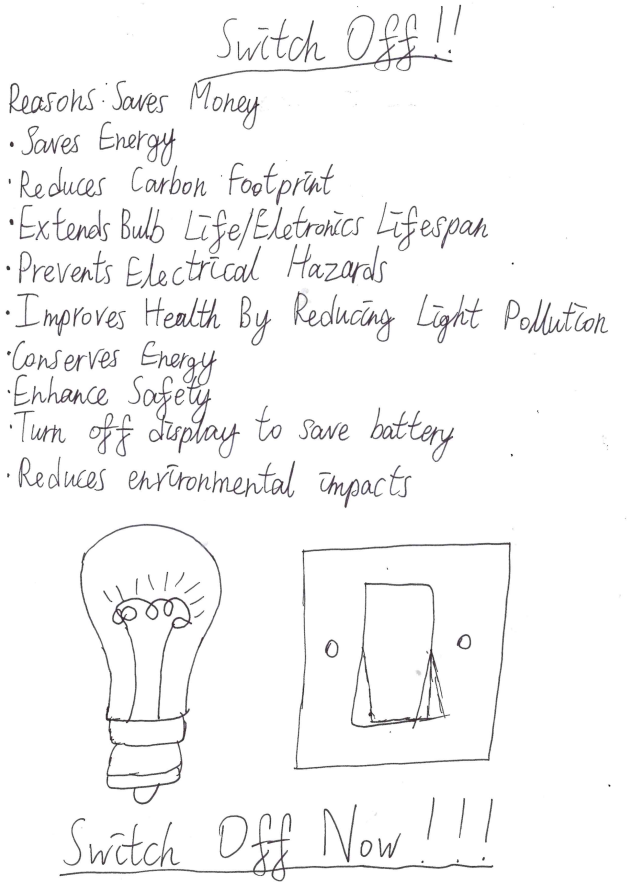 Switch Off!!
Reasons: Saves Money
• Saves Energy
• Reduces Carbon Footprint
• Extends Bulb Life/Eletronics Lifespan
• Prevents Electrical Hazards
• Improves Health By Reducing Light Pollution
• Conserves Energy
• Enhance Safety
• Turn off display to save battery
• Reduces environmental impacts
Switch Off Now!!!